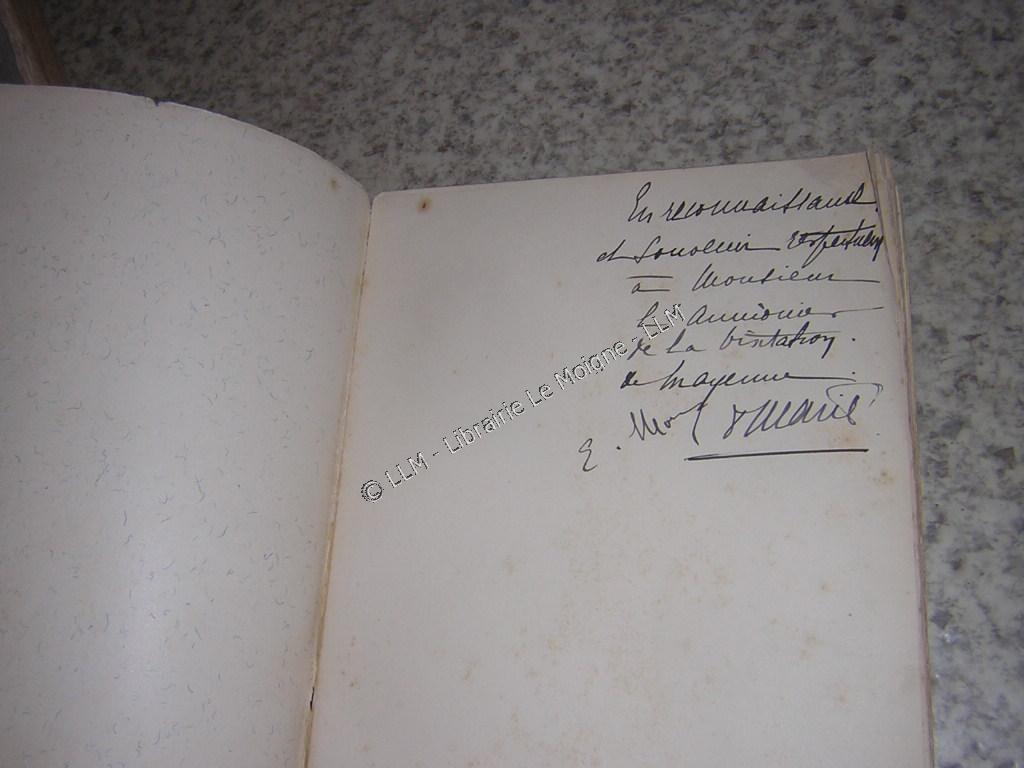 En reconnaissance
et souvenir respectueux
à Monsieur
l'Aumônier
de la Visitation
de Mayenne.
E.
© LLM - Librairie Le Moigne - LLM